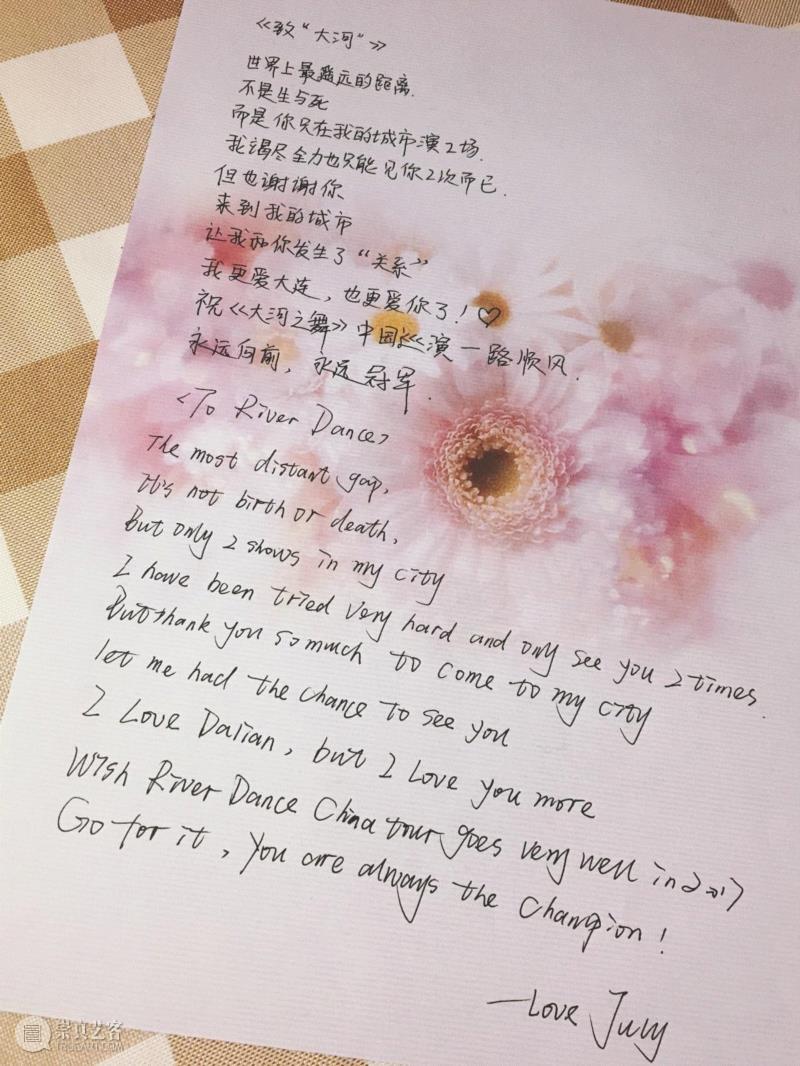 《致“大河”》
世界上最遥远的距离.
不是生与死
而是你只在我的城市演2场.
我竭尽全力也只能见你2次而已.
但也谢谢你
来到我的城市
让我和你发生了“关系”
我更爱大连，也更爱你了！♡
祝《大河之舞》中国巡演一路顺风.
永远向前，永远冠军.
<To River Dance>
The most distant gap,
It's not birth or death,
But only 2 shows in my city
I have been tried very hard and only see you 2 times.
But thank you so much to come to my city
let me had the chance to see you
I Love Dalian, but I Love you more
Wish River Dance China tour goes very well in 2017
Go for it, you are always the Champion!
—Love July
崇真艺客
TRUEART.COM